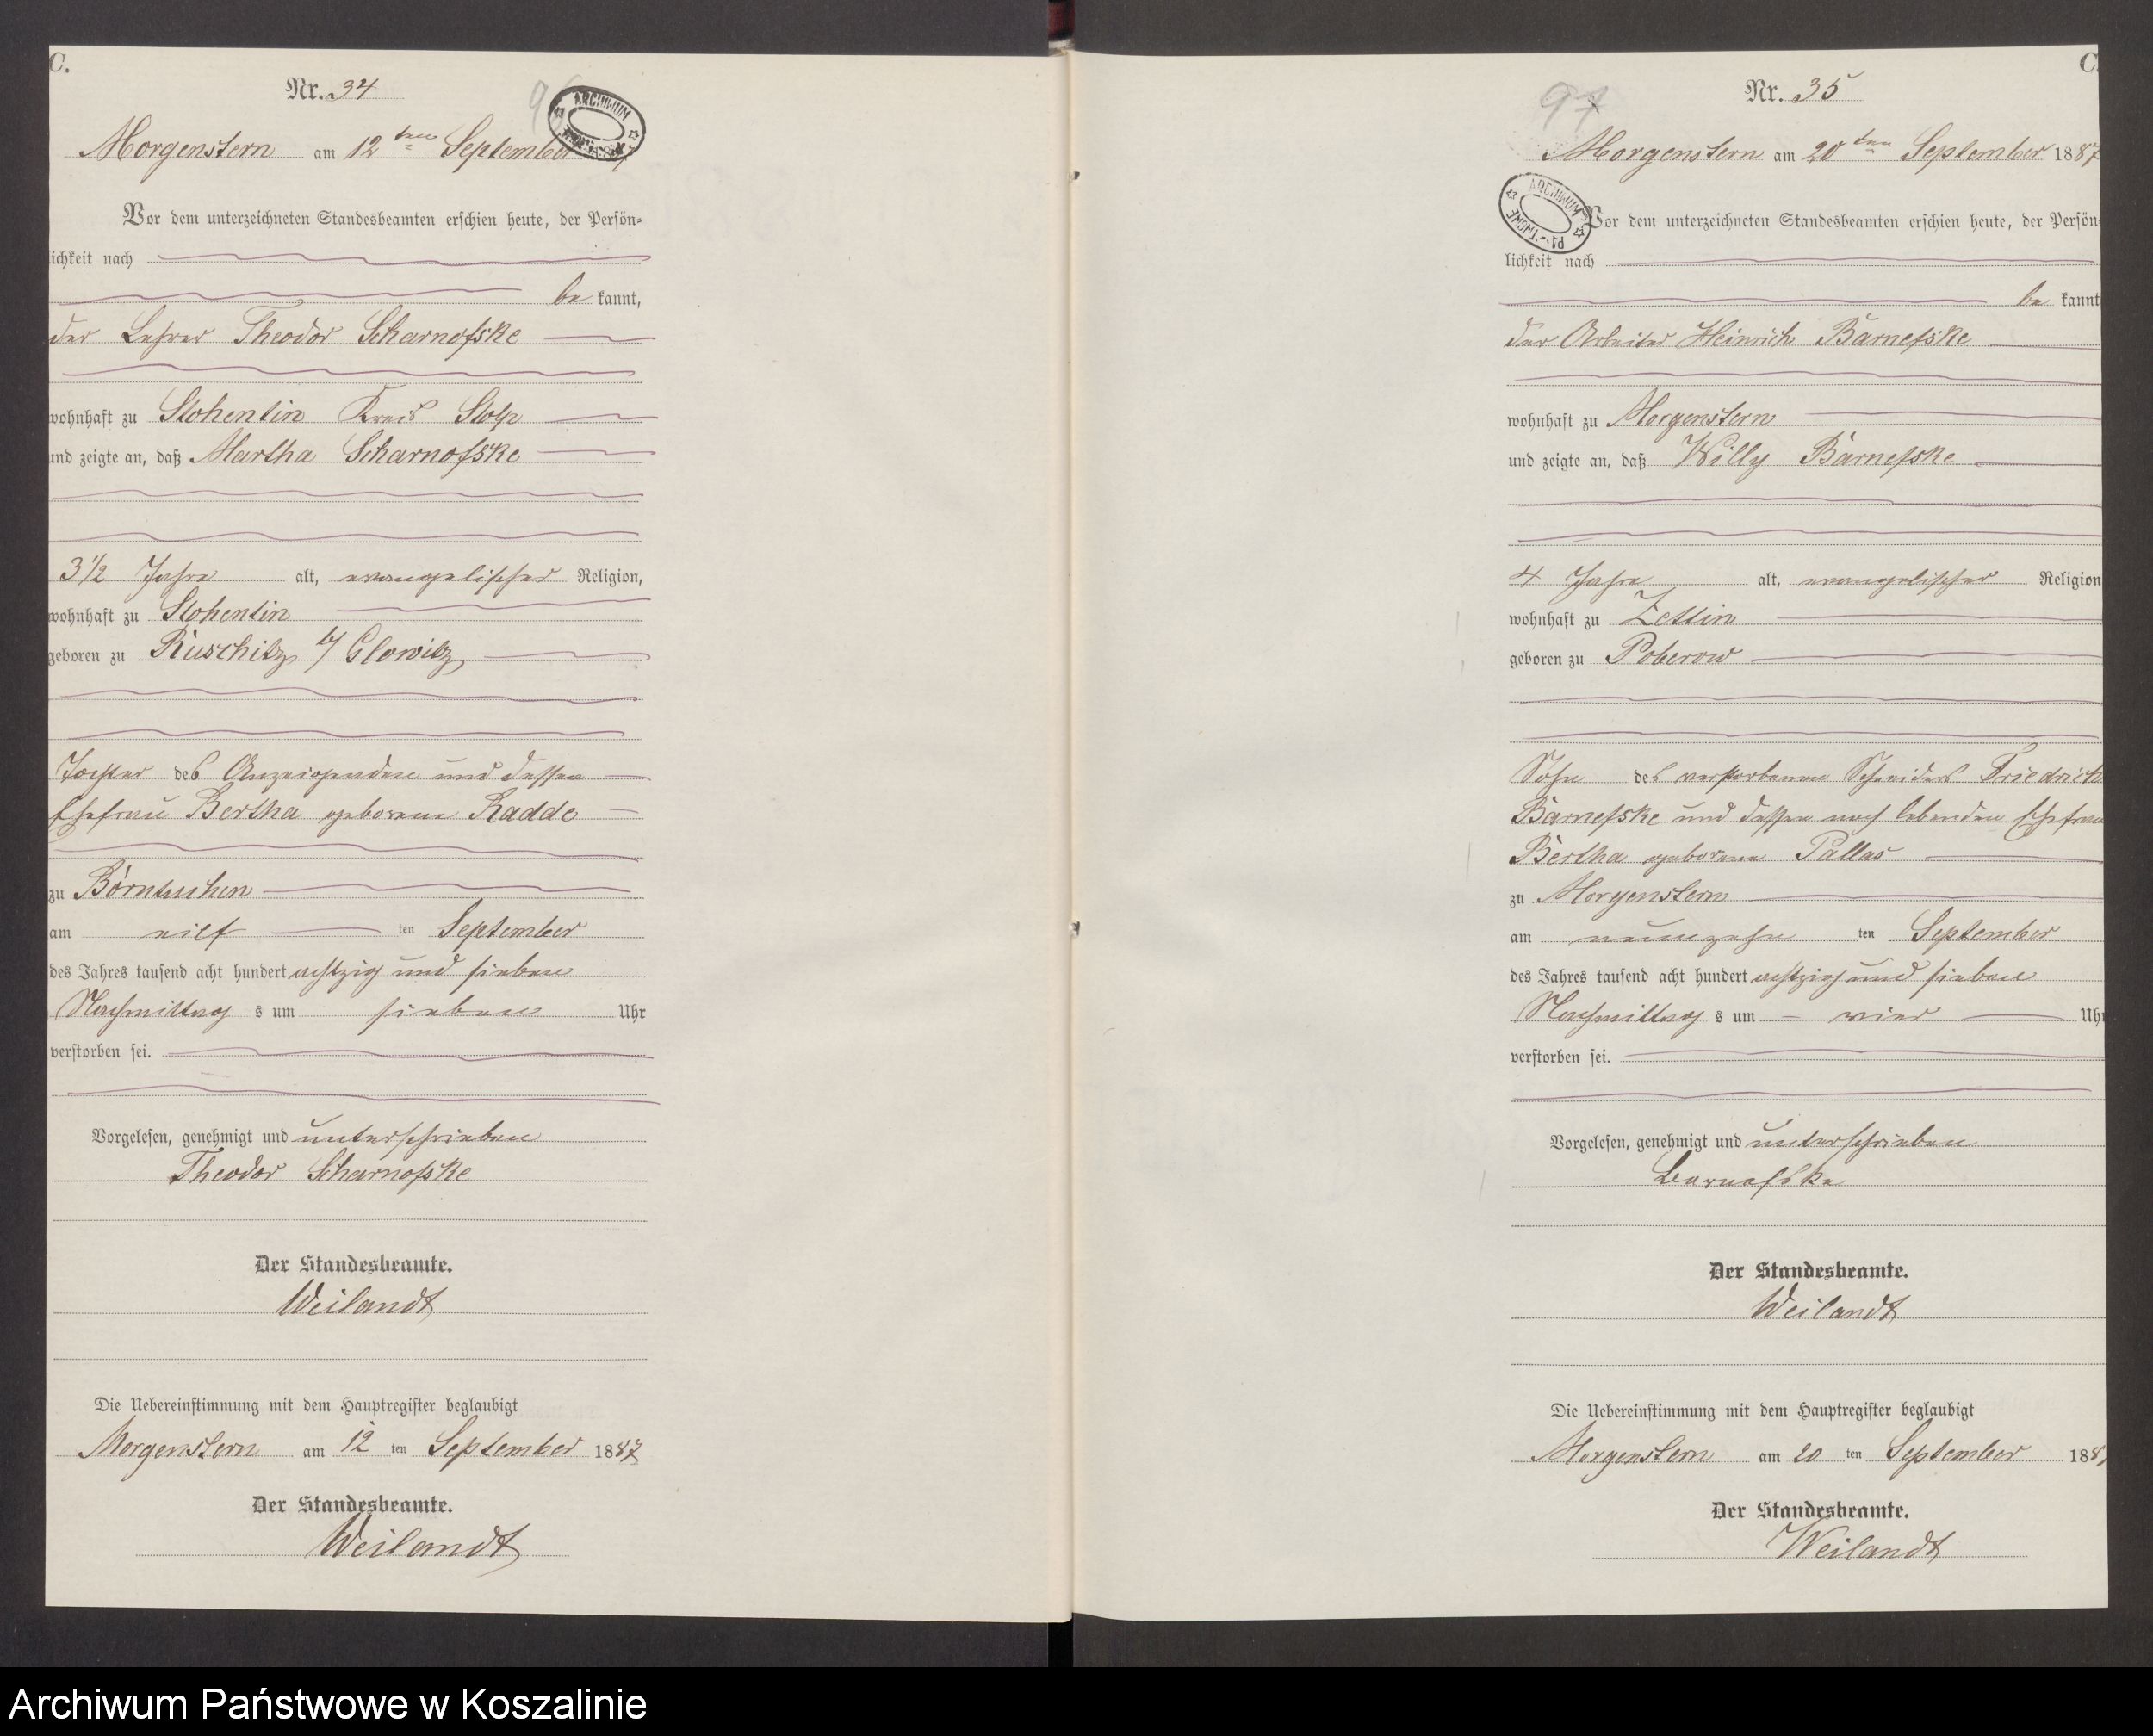 C.
Nr. 34
Morgenstern am 12ten September
Vor dem unterzeichneten Standesbeamten erschien heute, der Persön=
lichkeit nach
be kannt,
der Lehrer Theodor Scharnofske
wohnhaft zu Stohentin Kreis Stolp
und zeigte an, daß Martha Scharnofske
3 1/2 Jahre alt, evangelischer Religion,
wohnhaft zu Stohentin
geboren zu Ruschitz b/ Glowitz,
Tochter des Anzeigenden und dessen
Ehefrau Bertha geborene Radde
zu Börntuchen
am eilf ten September
des Jahres tausend acht hundert achtzig und sieben
Nachmittag s um sieben Uhr
verstorben sei.
Vorgelesen, genehmigt und unterschrieben
Theodor Scharnofske
Der Standesbeamte.
Weilandt
Die Uebereinstimmung mit dem Hauptregister beglaubigt
Morgenstern am 12 ten September 1887
Der Standesbeamte.
Weilandt
ARCHIWUM
C.
97
Nr. 35
Morgenstern am 20ten September 1887
ARCHIWUM
Vor dem unterzeichneten Standesbeamten erschien heute, der Persön
lichkeit nach
be kannt
der Arbeiter Heinrich Barnefske
wohnhaft zu Morgenstern
und zeigte an, daß Willy Barnefske
4 Jahre alt, evangelischer Religion
wohnhaft zu Zettin
geboren zu Poberow
Sohn des verstorbenen Schneiders Friedrich
Barnefske und dessen noch lebenden Ehefrau
Bertha geborene Pallas
zu Morgenstern
am neunzehn ten September
des Jahres tausend acht hundert achtzig und sieben
Nachmittag s um vier Uhr
verstorben sei.
Vorgelesen, genehmigt und unterschrieben
Barnefske
Der Standesbeamte.
Weilandt
Die Uebereinstimmung mit dem Hauptregister beglaubigt
Morgenstern am 20 ten September 188
Der Standesbeamte.
Weilandt
Archiwum Państwowe w Koszalinie